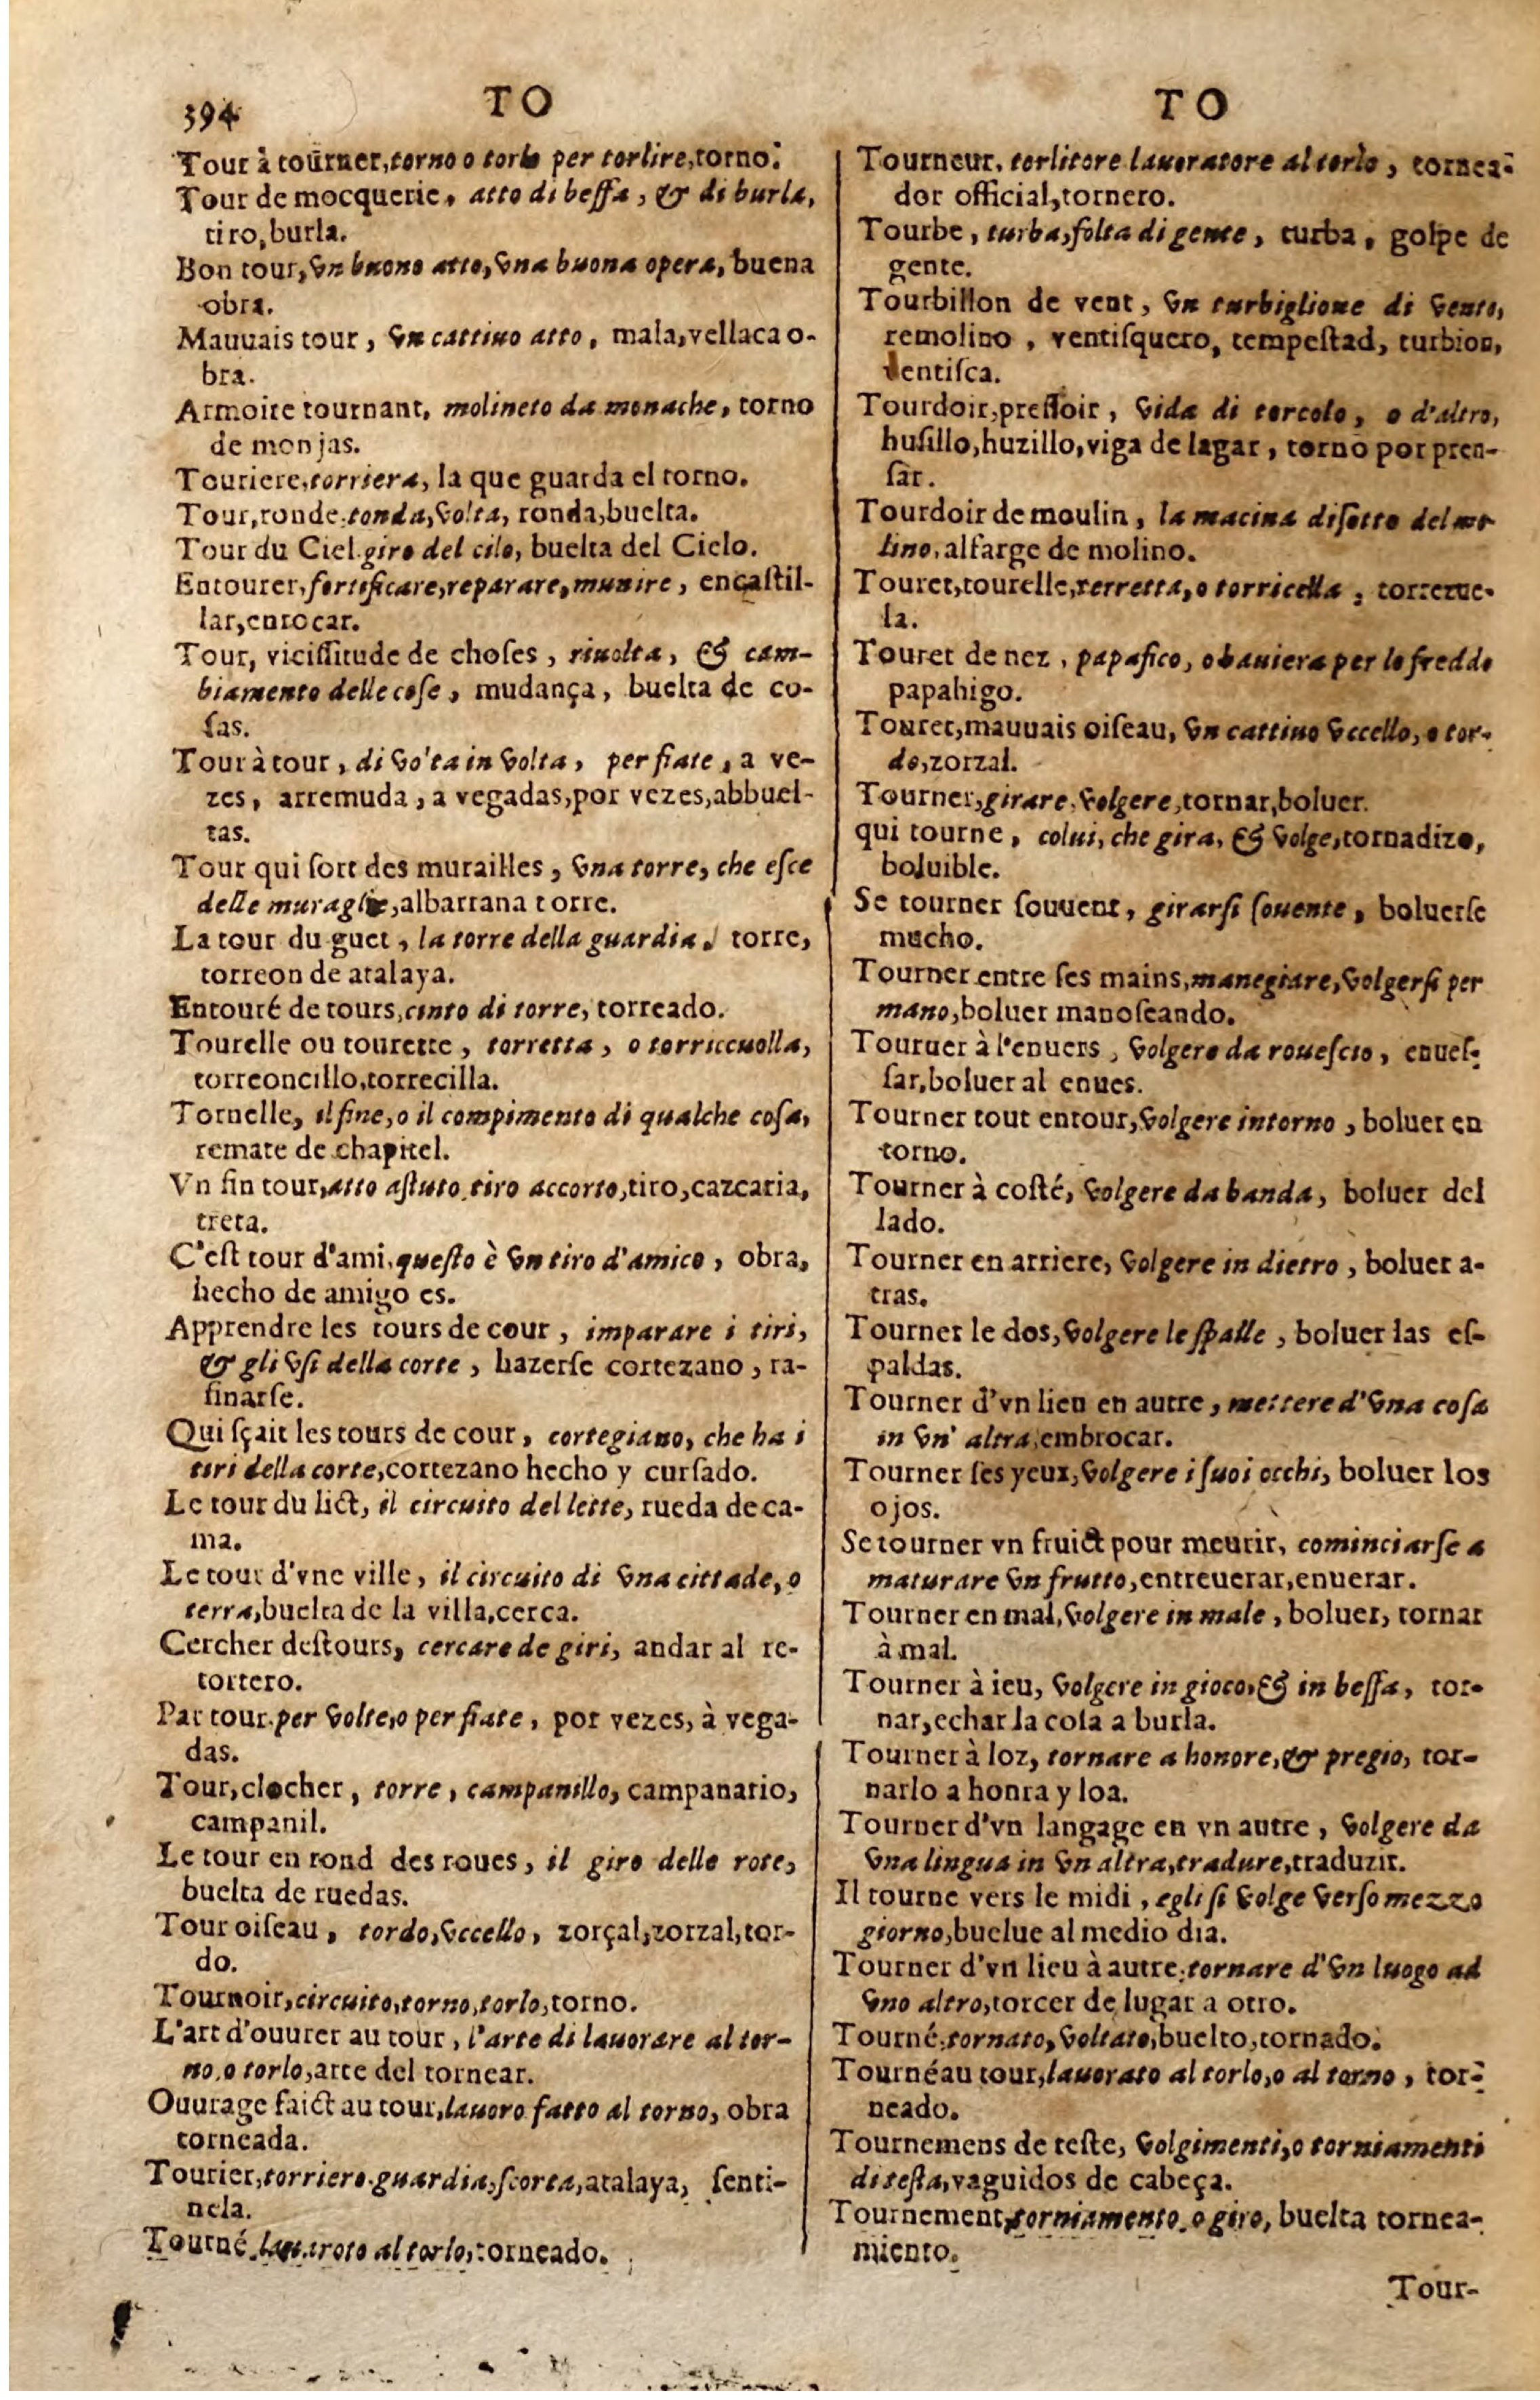 394
TO
Tour à tourner, torno o torlo per torlire, torno.
Tour de mocquerie, atto di beffa, & di burla,
tiro, burla.
Bon tour, vn buono atto, vna buona opera, buena
obra.
Mauuais tour, vn cattiuo atto, mala, vellaca o-
bra.
Armoire tournant, molineto da monache, torno
de monjas.
Touriere, torriera, la que guarda el torno.
Tour, ronde, ronda, volta, ronda, buelta.
Tour du Ciel giro del cilo, buelta del Cielo.
Entourer, fortificare, reparare, munire, encaſtil-
lar, entocar.
Tour, viciſſitude de choſes, riuolta, & cam-
biamento delle coſe, mudança, buelta de co-
ſas.
Tour à tour, di volta in volta, per fiate, a ve-
zes, arremuda, a vegadas, por vezes, abbuel-
tas.
Tour qui ſort des murailles, vna torre, che eſce
delle muraglie, albarrana torre.
La tour du guet, la torre della guardia, torre,
torreon de atalaya.
Entouré de tours, cinto di torre, torreado.
Tourelle ou tourette, torretta, o torriccuolla,
torreoncillo, torrecilla.
Tornelle, il fine, o il compimento di qualche coſa,
remate de chapitel.
Vn fin tour, atto aſtuto, tiro accorto, tiro, cazcaria,
treta.
C'eſt tour d'ami, queſto è vn tiro d'amico, obra,
hecho de amigo es.
Apprendre les tours de cour, imparare i tiri,
& gli vſi della corte, hazerſe cortezano, ra-
finarſe.
Qui ſçait les tours de cour, cortegiano, che ha i
tiri della corte, cortezano hecho y curſado.
Le tour du lict, il circuito del lette, rueda de ca-
ma.
Le tour d'vne ville, il circuito di vna cittade, o
terra, buelta de la villa, cerca.
Cercher deſtours, cercare de giri, andar al re-
tortero.
Par tour per volte, o per fiate, por vezes, à vega-
das.
Tour, clocher, torre, campanillo, campanario,
campanil.
Le tour en rond des roues, il giro delle rote,
buelta de ruedas.
Tour oiſeau, tordo, vccello, zorçal, zorzal, tor-
do.
Tournoir, circuito, torno, torlo, torno.
L'art d'ouurer au tour, l'arte di lauorare al tor-
no, o torlo, arte del tornear.
Ouurage faict au tour, lauoro fatto al torno, obra
torneada.
Tourier, torriero, guardia, ſcorta, atalaya, ſenti-
nela.
Tourné, lauaroto al torlo, torneado.
TO
Tourneur, torlitore lauoratore al torlo, tornea-
dor official, tornero.
Tourbe, turba, folta di gente, turba, golpe de
gente.
Tourbillon de vent, vn turbiglione di vento,
remolino, ventiſquero, tempeſtad, turbion,
ventiſca.
Tourdoir, preſſoir, vida di torcolo, o d'altro,
huſillo, huzillo, viga de lagar, torno por pren-
ſar.
Tourdoir de moulin, la macina diſotto del mo-
lino, alfarge de molino.
Touret, tourelle, terretta, o torricella, torrezue-
la.
Touret de nez, papafico, o bauiera per lo freddo
papahigo.
Touret, mauuais oiſeau, vn cattiuo vccello, o tor-
do, zorzal.
Tourner, girare, volgere, tornar, boluer.
qui tourne, colui, che gira, & volge, tornadizo,
boluible.
Se tourner ſouuent, girarſi ſouente, boluerſe
mucho.
Tourner entre ſes mains, manegiare, volgerſi per
mano, boluer manoſeando.
Tourner à l'enuers, volgere da roueſcio, enueſ-
ſar, boluer al enues.
Tourner tout entour, volgere intorno, boluer en
torno.
Tourner à coſté, volgere da banda, boluer del
lado.
Tourner en arriere, volgere in dietro, boluer a-
tras.
Tourner le dos, volgere le ſpalle, boluer las eſ-
paldas.
Tourner d'vn lieu en autre, mettere d'vna coſa
in vn' altra, embrocar.
Tourner ſes yeux, volgere i ſuoi occhi, boluer los
ojos.
Se tourner vn fruict pour meurir, cominciarſe a
maturare vn frutto, entreuerar, enuerar.
Tourner en mal, volgere in male, boluer, tornar
à mal.
Tourner à ieu, volgere in gioco, & in beffa, tor-
nar, echar la cola a burla.
Tourner à loz, tornare a honore, & pregio, tor-
narlo a honra y loa.
Tourner d'vn langage en vn autre, volgere da
vna lingua in vn altra, tradure, traduzir.
Il tourne vers le midi, egli ſi volge verſo mezzo
giorno, buelue al medio dia.
Tourner d'vn lieu à autre, tornare d'vn luogo ad
vno altro, torcer de lugar a otro.
Tourné, tornato, voltato, buelto, tornado.
Tourné au tour, lauorato al torlo, o al torno, tor-
neado.
Tournemens de teſte, volgimenti, o torniamenti
di teſta, vaguidos de cabeça.
Tournement, torniamento, o giro, buelta tornea-
miento.
Tour-